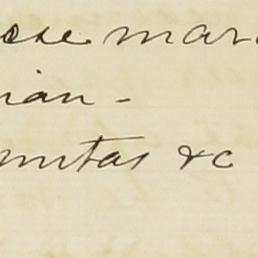 ese mar
nian -
mutas &c